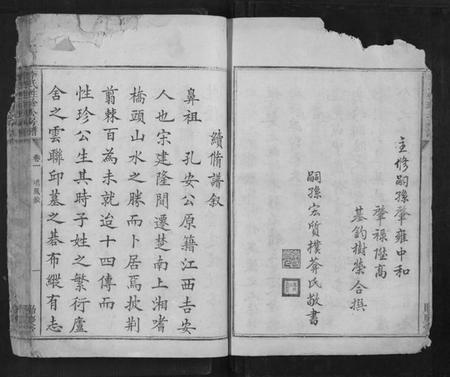 主修嗣孫肇雍中和
肇祿陞高
基鈞樹榮合撰
嗣孫宏質樸菴氏敬書
續脩譜叙
鼻祖 孔安公原籍江西吉安
人也宋建隆間遷楚南上湘嗜
橋頭山水之勝而卜居焉披荆
翦棘百為未就迨十四傳而
性珍公生其時子姓之繁衍廬
舍之雲聯邱墓之碁布縱有志
卷一